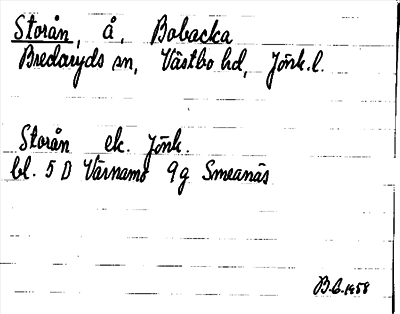 Storån, å, Bobacka
Bredaryds sn, Västbo hd, Jönk.l.
Storån ek. Jönk.
bl. 5 D Värnamo 9g Smeanäs
B.G. 1958